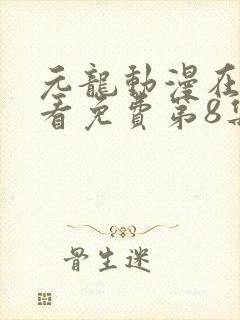 元龍動漫在
看免費第8集
骨生迷